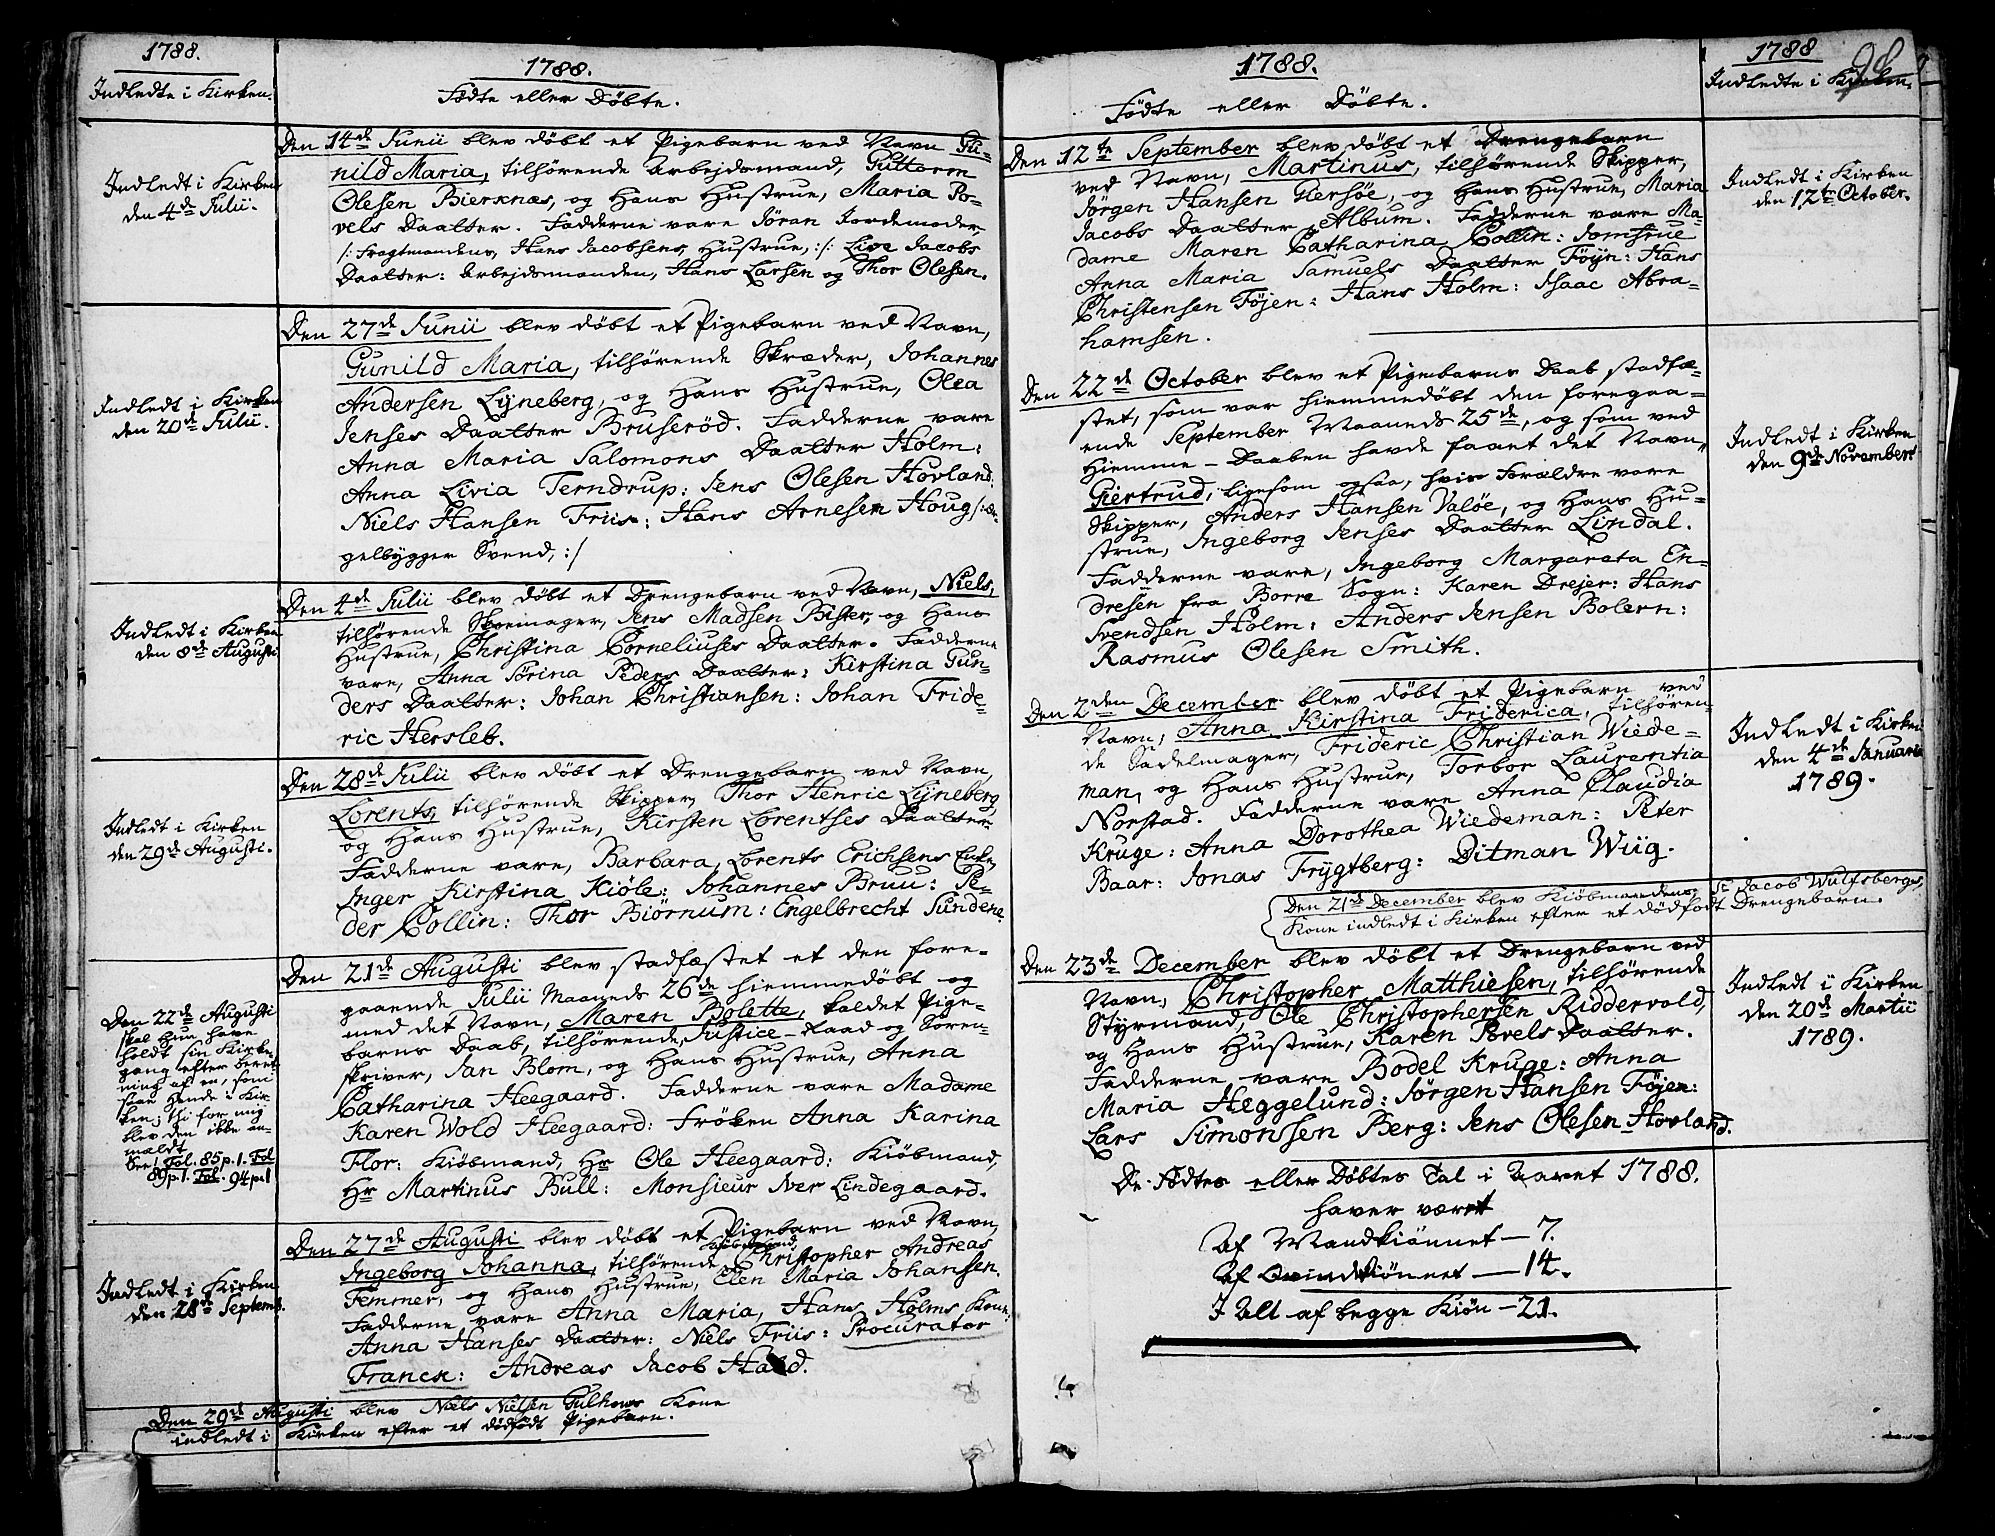 1788.
Indledte i Kirken.
1788.
Födte eller Döbte.
Indledt i Kirken
den 4de Julii.
Den 14de Junii blev döbt et Pigebarn ved Navn Gu=
nild Maria, tilhörende Arbejdsmand, Guttorm
Olesen Bierknæs, og Hans Hustrue, Maria Po=
vels Daatter. Fadderne vare Jöran Jordemoder
/: Fragtmandens, Hans Jacobsens, Hustrue, :/: Live Jacobs
Daatter: Arbejdsmanden, Hans Larsen og Thor Olesen.
Indledt i Kirken
den 20de Julii.
Den 27de Junii blev döbt et Pigebarn ved Navn,
Gunild Maria, tilhörende Skræder, Johannes
Andersen Lyneberg, og Hans Hustrue, Olea
Jenses Daatter Bruseröd. Fadderne vare
Anna Maria Salomons Daatter Holm:
Anna Livia Terndrup: Jens Olesen Hovland:
Niels Hansen Friis: Hans Arnesen Houg /: Or=
gelbygger Svend, :/
Indledt i Kirken
den 8de Augusti
Den 4de Julii blev döbt et Drengebarn ved Navn, Niels,
tilhörende Skoemager, Jens Madsen Bister, og Hans
Hustrue, Christina Corneliuses Daatter. Fadderne
vare, Anna Törina Peders Daatter: Kirstina Gun=
ders Daatter: Johan Christiansen: Johan Fride=
ric Hersleb.
Indledt i Kirken
den 29de Augusti.
Den 28de Julii blev döbt et Drengebarn ved Navn,
Lorents, tilhörende Skipper, Thor Henric Lyneberg,
og Hans Hustrue, Kirsten Lorentses Daatter
Fadderne vare, Barbara, Lorents Erichsens Enke,
Inger Kirstina Kiöle: Johannes Bruu: Pe=
der Collin: Thor Biörnum: Engelbrecht Sundene.
Den 22de Augusti
skal Hun have
holdt sin Kirke
gang efter beret
ning af en, som
saae Hende i Kir
ken; thi for mig
blev den ikke an=
mældt.
See Fol. 85 p. 1. Fol
89 p. 1. Fol. 94 p. 1
Den 21de Augusti blev stadfæstet et den fore=
gaaende Julii Maaneds 26de hiemmedöbt og
med det Navn, Maren Bolette, kaldet Pige=
barns Daab, tilhörende, Justice-Raad og Soren=
skriver, Jan Blom, og Hans Hustrue, Anna
Catharina Heegaard. Fadderne vare Madame
Karen Wold Heegaard: Fröken Anna Karina
Flor: Kiöbmand, Hr Ole Heegaard: Kiöbmand,
Hr Martinus Bull: Monsieur Iver Lindegaard.
Indledt i Kirken
den 28de Septemb.
Den 27de Augusti blev döbt et Pigebarn ved Navn,
Ingeborg Johanna, tilhörende Kiöbmand, Christopher Andreas
Femmer, og Hans Hustrue, Elen Maria Johansen.
Fadderne vare Anna Maria, Hans Holms Kone:
Anna Hanses Daatter: Niels Friis: Procurator
Franck: Andreas Jacob Hald.
Den 29de Augusti blev Niels Nielsen Gulhows Kone
indledt i Kirken efter et dödfödt Pigebarn.
1788.
Födte eller Döbte.
1788
Indledte i Kirken.
98
Den 12te September blev döbt et Drengebarn
ved Navn, Martinus, tilhörende Skipper,
Jörgen Hansen Hersöe, og Hans Hustrue, Maria
Jacobs Daatter Album. Fadderne vare Ma=
dame Maren Catharina Collin: Jomfrue
Anna Maria Samuels Daatter Föyn: Hans
Christensen Föjen: Hans Holm: Isaac Abra=
hamsen.
Indledt i Kirken
den 12te October.
Den 22de October blev et Pigebarns Daab stadfæ=
stet, som var hiemmedöbt den foregaa=
ende September Maaneds 25de, og som ved
Hiemme-Daaben havde faaet det Navn,
Giertrud, ligesom ogsaa, hvis Forældre vare
Skipper, Anders Hansen Valöe, og Hans Hu=
strue, Ingeborg Jenses Daatter Lindal.
Fadderne vare, Ingeborg Margareta En=
dresen fra Borre Sogn: Karen Drejer: Hans
Svendsen Holm: Anders Jensen Bolern:
Rasmus Olesen Smith.
Indledt i Kirken
den 9de Novembert
Den 2den December blev döbt et Pigebarn ved
Navn, Anna Kirstina Friderica, tilhören=
de Sadelmager, Frideric Christian Wiede=
man, og Hans Hustrue, Torbor Laurentia
Norstad. Fadderne vare Anna Claudia
Kruge: Anna Dorothea Wiedeman: Peter
Baar: Jonas Frygtberg: Ditman Wiig.
Indledt i Kirken
den 4de Januarii
1789.
Den 21de December blev Kiöbmandens, Sr Jacob Wulfsbergs,
Kone indledt i Kirken efter et dödfödt Drengebarn.
Den 23de December blev döbt et Drengebarn ved
Navn, Christopher Matthiesen, tilhörende
Styrmand, Ole Christophersen Riddervold,
og Hans Hustrue, Karen Povels Daatter.
Fadderne vare Bodel Kruge: Anna
Maria Heggelund: Jörgen Hansen Föjen:
Lars Simonssen Berg: Jens Olesen Hovland.
Indledt i Kirken
den 20de Martii
1789.
De Födtes eller Döbtes Tal i Aaret 1788.
haver været
Af Mandkiönnet — 7.
Af Qvindkiönnet — 14.
I Alt af begge Kiön — 21.